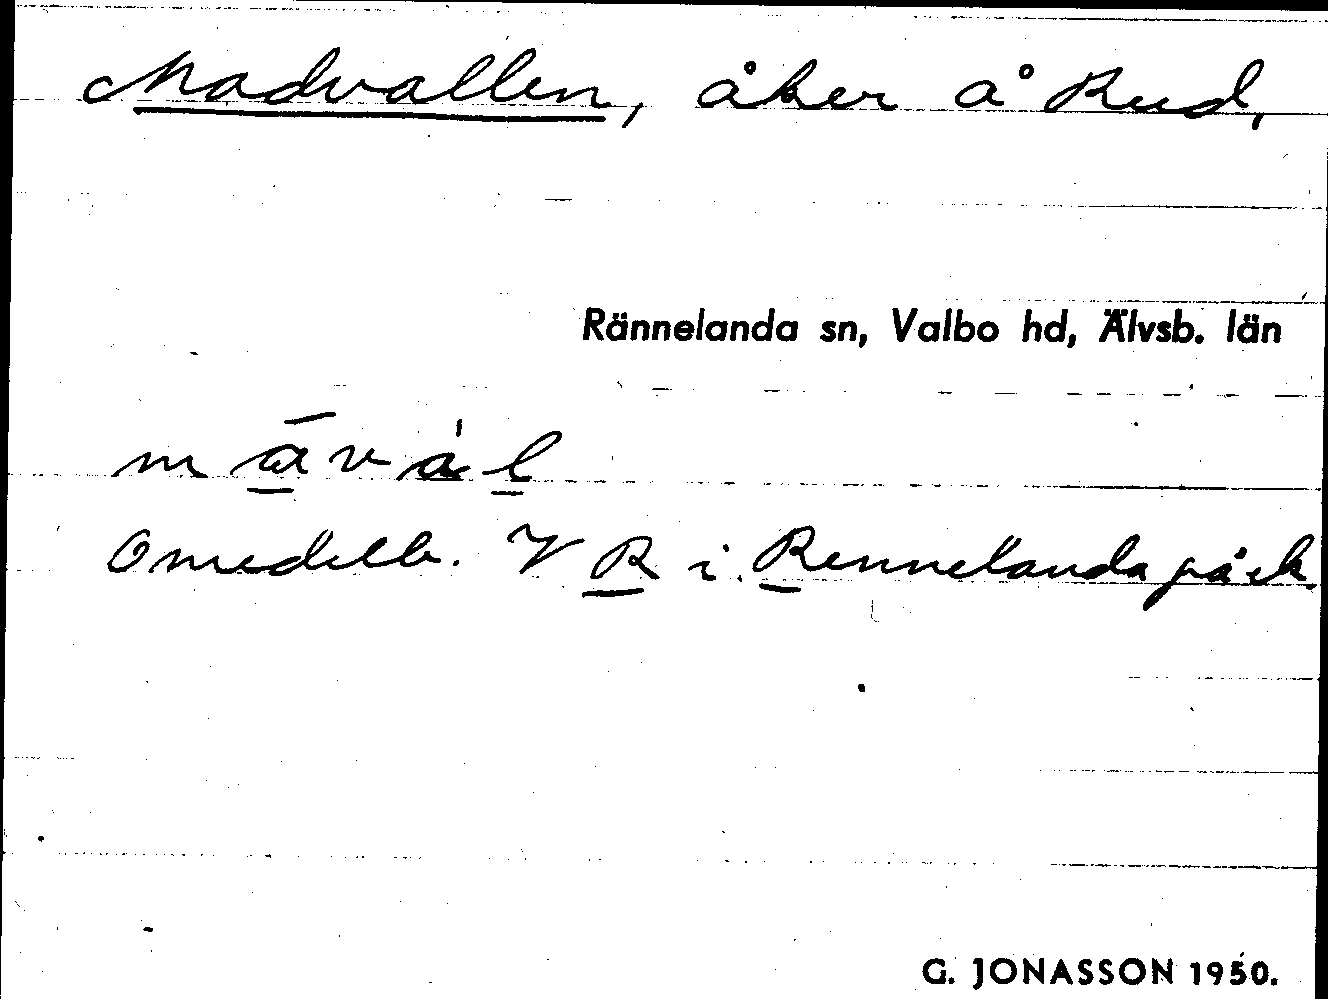 Madvallen, åker å Rud,
Rännelanda sn, Valbo hd, Älvsb. län
Omedelb. V R i Rennelanda på ek
G. JONASSON 1950.